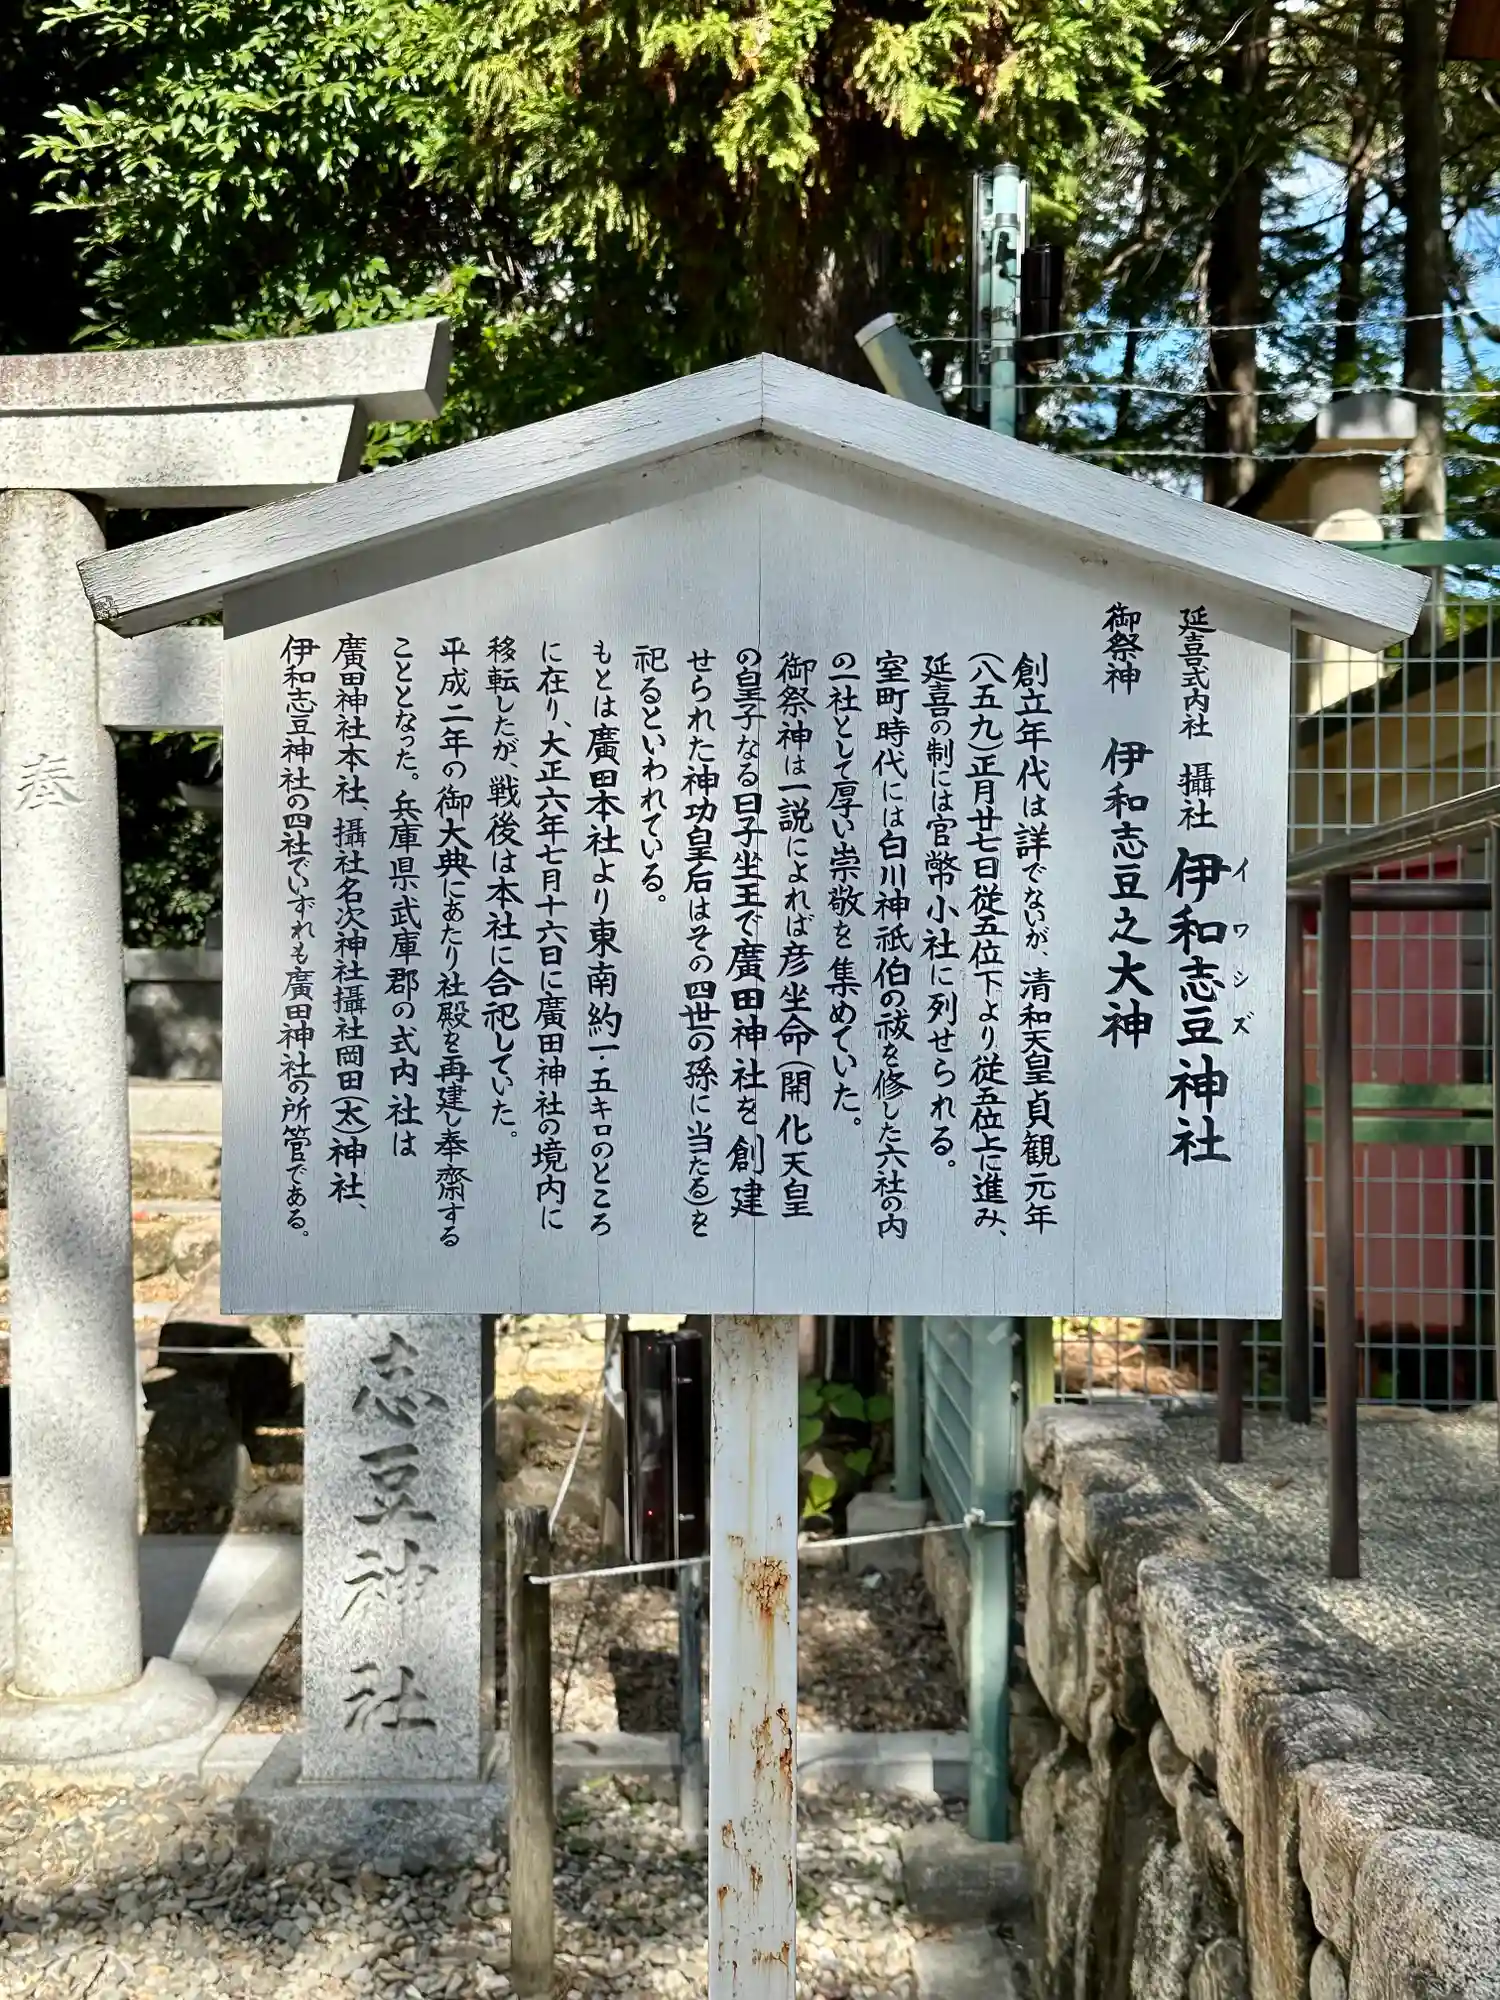 延喜式内社 攝社 伊和志豆神社
イワシズ
御祭神 伊和志豆之大神
創立年代は詳でないが、清和天皇貞観元年
(八五九)正月廿七日従五位下より従五位上に進み、
延喜の制には官幣小社に列せられる。
室町時代には白川神祇伯の祓を修した六社の内
の一社として厚い崇敬を集めていた。
御祭神は一説によれば彦坐命(開化天皇
の皇子なる日子坐王で廣田神社を創建
せられた神功皇后はその四世の孫に当たる)を
祀るといわれている。
もとは廣田本社より東南約一・五キロのところ
に在り、大正六年七月十六日に廣田神社の境内に
移転したが、戦後は本社に合祀していた。
平成二年の御大典にあたり社殿を再建し奉齋する
こととなった。兵庫県武庫郡の式内社は
廣田神社本社、攝社名次神社攝社岡田(太)神社、
伊和志豆神社の四社でいずれも廣田神社の所管である。
奉
志豆神社